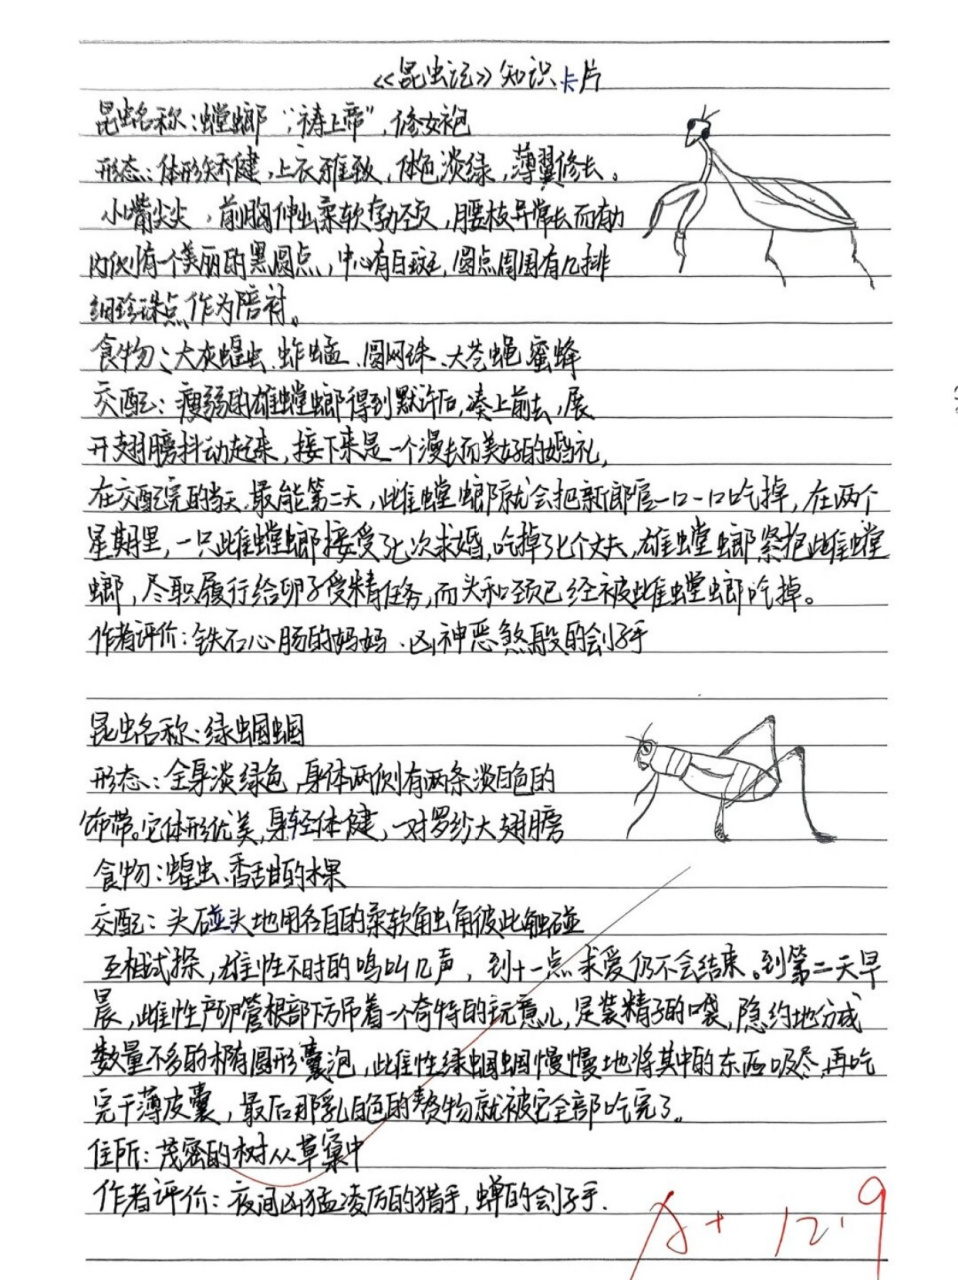 《昆虫记》知识卡片
昆虫名称:螳螂 "祷上帝",修女袍
形态:体形矫健,上衣雅致,体色淡绿,薄翼修长。
小嘴尖尖,前胸伸出柔软劲颈,腰板异常长而有力
内侧有一个美丽的黑圆点,中心有白斑,圆点周围有几排
细珍珠点作为陪衬。
食物:大灰蝗虫、蚱蜢、圆网蛛、大苍蝇、蜜蜂
交配:瘦弱的雄螳螂得到默许后,凑上前去,展
开翅膀抖动起来,接下来是一个漫长而美好的婚礼,
在交配完的当天,最能第二天,雌螳螂就会把新郎官一口一口吃掉,在两个
星期里,一只雌螳螂接受了七次求婚,吃掉了七个丈夫,雄螳螂紧抱雌螳
螂,尽职履行给卵子受精任务,而头和颈已经被雌螳螂吃掉。
作者评价:铁石心肠的妈妈、凶神恶煞般的刽子手
昆虫名称:绿蝈蝈
形态:全身淡绿色,身体两侧有两条淡白色的
饰带。它体形优美,身轻体健,一对罗纱大翅膀
食物:蝗虫、香甜的水果
交配:头碰头地用各自的柔软触角彼此触碰
互相试探,雄性不时的鸣叫几声,到十一点求爱仍不会结束。到第二天早
晨,雌性产卵管根部下方吊着一个奇特的玩意儿,是装精子的口袋,隐约地分成
数量不多的椭圆形囊泡,雌性绿蝈蝈慢慢地将其中的东西吸尽,再吃
完干薄皮囊,最后那乳白色的赘物就被它全部吃完了。
住所:茂密的树丛草窠中
作者评价:夜间凶猛凌厉的猎手,蝉的刽子手.
A+ 12.9